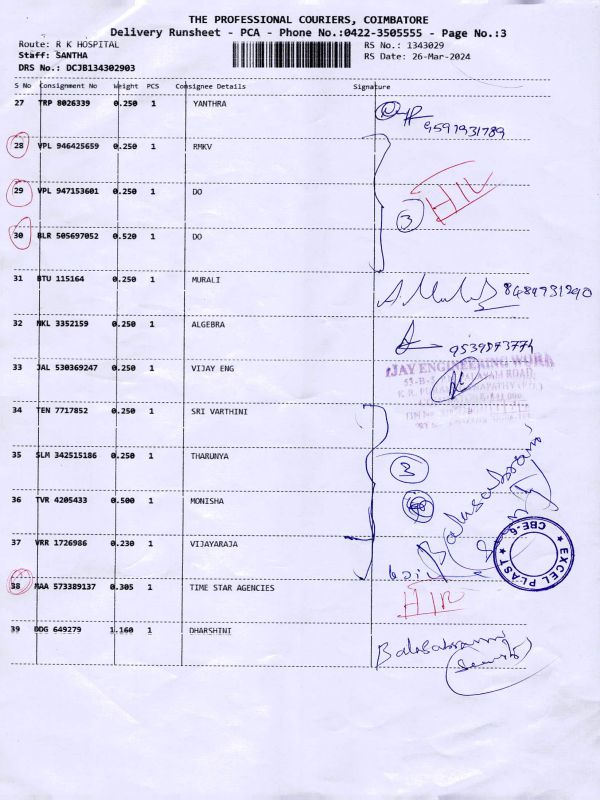 THE PROFESSIONAL COURIERS, COIMBATORE
Delivery Runsheet - PCA - Phone No.:0422-3505555 - Page No.:3
Route: R K HOSPITAL
RS No.: 1343029
Staff: SANTHA
RS Date: 26-Mar-2024
DRS No.: DCJB134302903
S No Consignment No Weight PCS Consignee Details Signature
27 TRP 8026339 0.250 1 YANTHRA
9597931789
28 VPL 946425659 0.250 1 RMKV
29 VPL 947153601 0.250 1 DO
HIR
3
30 BLR 505697052 0.520 1 DO
31 BTU 115164 0.250 1 MURALI
8484931290
32 NKL 3352159 0.250 1 ALGEBRA
33 JAL 530369247 0.250 1 VIJAY ENG
IJAY ENGINEERING WORK
34 TEN 7717852 0.250 1 SRI VARTHINI
35 SLM 342515186 0.250 1 THARUNYA
3
36 TVR 4205433 0.500 1 MONISHA
Balasubramani
37 VRR 1726986 0.230 1 VIJAYARAJA
★ EXCEL PLAST ★ CBE-6
38 MAA 573389137 0.305 1 TIME STAR AGENCIES
HIR
39 DDG 649279 1.160 1 DHARSHINI